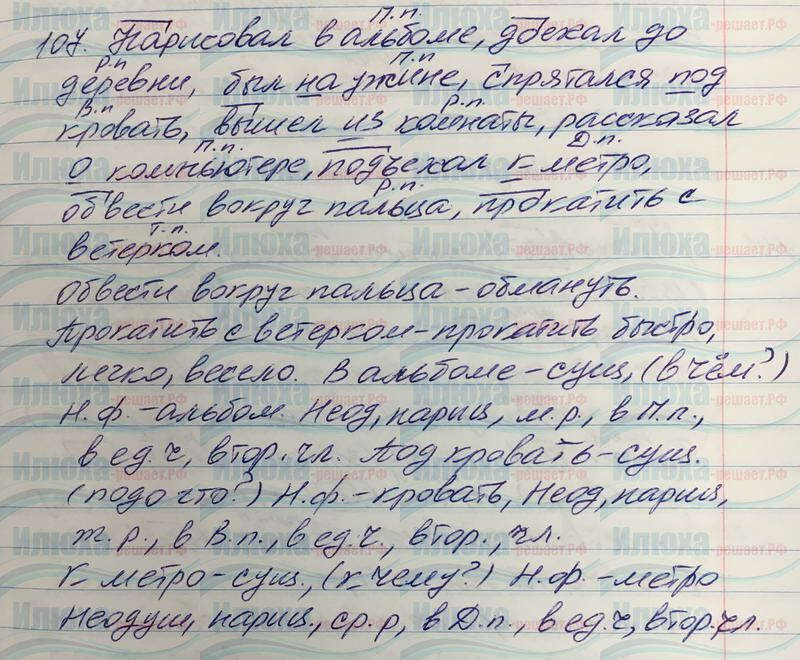 107. Нарисовал в альбоме, дбежал до
П.п.
деревни, был на ужине, спрятался под
Р.п П.п
кровать, вышел из комнаты, рассказал
В.п Р.п.
о компьютере, подъехал к метро,
П.п. Д.п.
обвести вокруг пальца, прокатить с
Р.п.
ветерком.
Т.п.
Обвести вокруг пальца - обмануть.
Прокатить с ветерком - прокатить быстро,
легко, весело. В альбоме - сущ, (в чём?)
Н.ф. - альбом. Неод, нариц, м.р., в П.п.,
в ед.ч, втор. чл. Под кровать - сущ.
(подо что?) Н.ф. - кровать, Неод, нариц,
ж.р., в В.п., в ед.ч., втор., чл.
К метро - сущ., (к чему?) Н.ф. - метро
Неодуш, нариц., ср.р, в Д.п., в ед.ч, втор.чл.
Илюха-решает.РФ